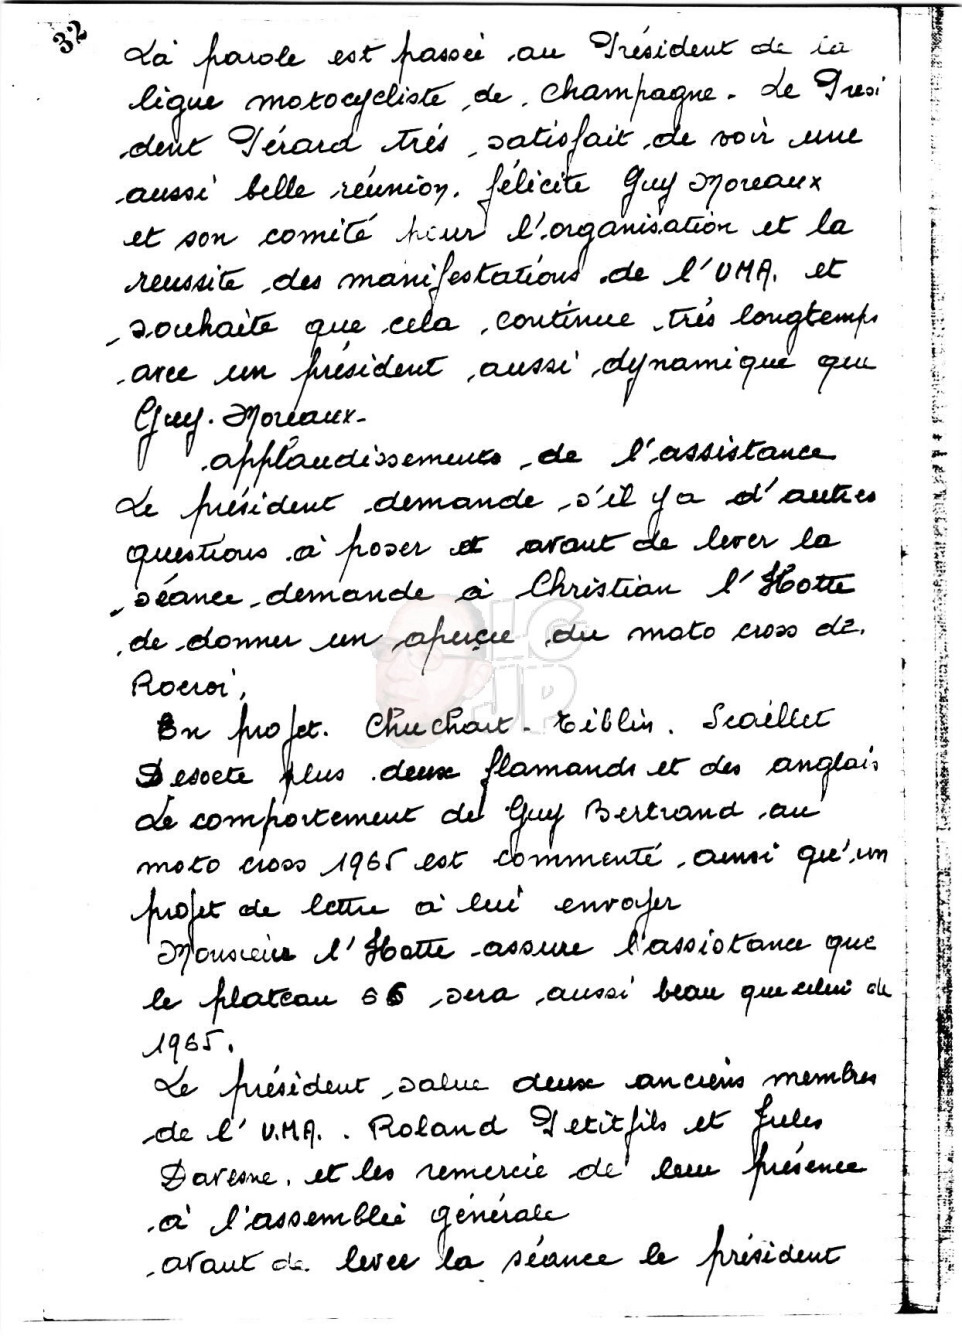 32
La parole est passée au Président de la
ligue motocycliste de champagne. Le Prési
dent Pérard très satisfait de voir une
aussi belle réunion. félicite Guy Moreaux
et son comité pour l'organisation et la
reussite des manifestations de l'UMA. et
souhaite que cela continue très longtemps
avec un président aussi dynamique que
Guy. Moreaux.
applaudissements de l'assistance
Le président demande s'il y a d'autres
questions à poser et avant de lever la
séance demande à Christian l'Hotte
de donner un aperçue du moto cross de
Rocroi,
En projet. Chuchart. Tiblin. Scaillet
Desoete plus deux flamands et des anglais
Le comportement de Guy Bertrand au
moto cross 1965 est commenté ainsi qu'un
projet de lettre à lui envoyer
Monsieur l'Hotte assure l'assistance que
le plateau 66 sera aussi beau que celui de
1965.
Le président salue deux anciens membres
de l'U.M.A. Roland Petitfils et Jules
Davesne. et les remercie de leur présence
à l'assemblée générale
avant de lever la séance le président
LC
JP